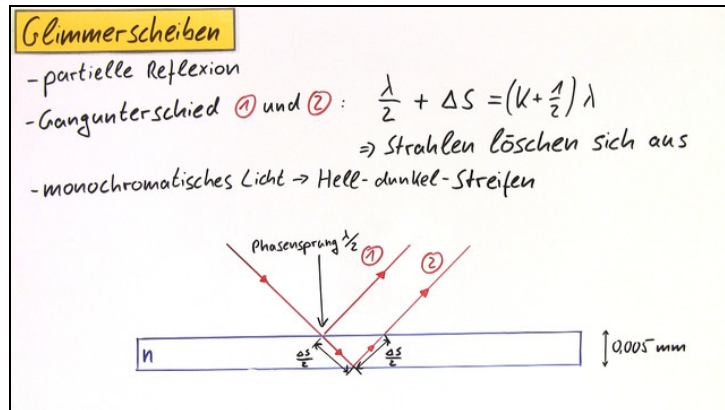 Glimmerscheiben
- partielle Reflexion
- Gangunterschied ① und ② : λ/2 + ΔS = (K + 1/2) λ
⇒ Strahlen löschen sich aus
- monochromatisches Licht → Hell-dunkel-Streifen
Phasensprung λ/2
① ②
n ΔS/2 ΔS/2 0,005 mm